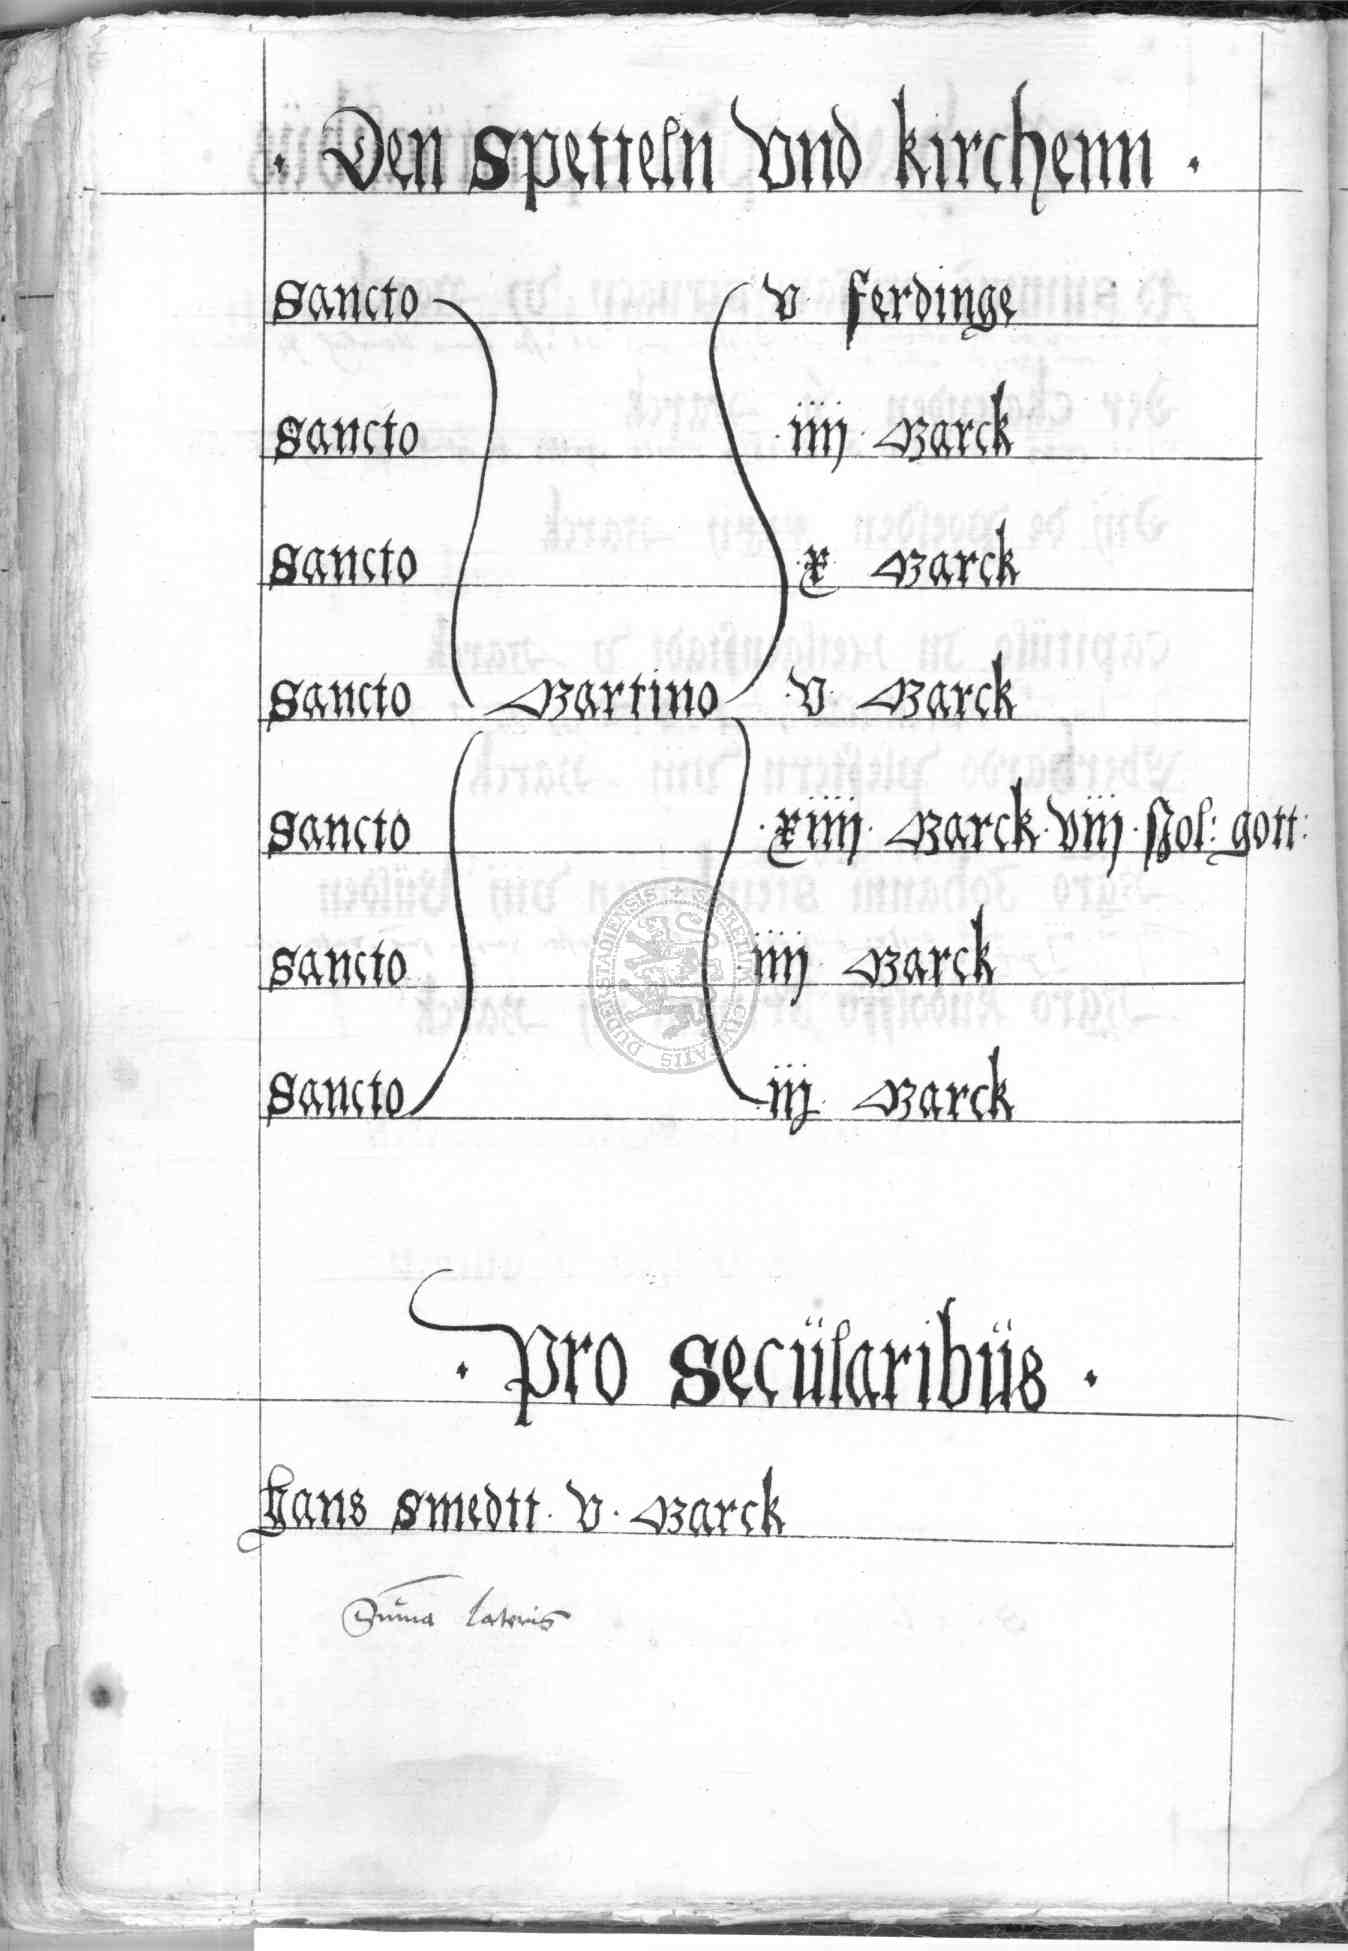 · Den Spetteln vnd kirchenn ·
Sancto v ferdinge
Sancto · iiij · Marck
Sancto · x · Marck
Sancto Martino · v · Marck
Sancto · xiiij · Marck · viij · sol: gott:
Sancto · iiij · Marck
Sancto · iij · Marck
· Pro Secularibüs ·
Hans Smedtt · v · Marck
Summa lateris
SECRETUM CIVITATIS DUDERSTADIENSIS